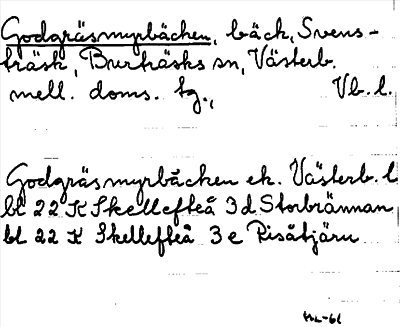 Godgräsmyrbäcken, bäck, Svens-
träsk, Burträsks sn, Västerb.
mell. doms. tg., Vb. l.
Godgräsmyrbäcken ek. Västerb. l
bl 22 K Skellefteå 3 d Storbrännan
bl 22 K Skellefteå 3 e Risåtjärn